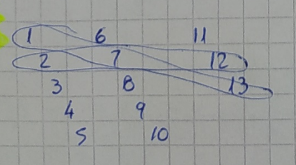 1 6 11
2 7 12
3 8 13
4 9
5 10